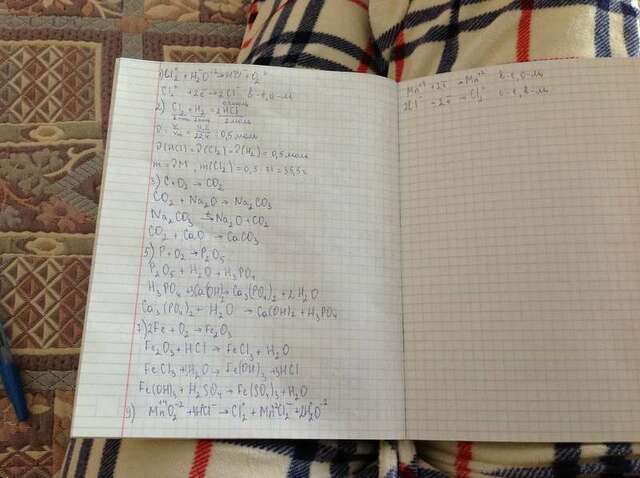 1) Cl₂⁰ + H₂O → HCl + O₂⁰
Cl₂⁰ + 2ē → 2Cl⁻ в-е, о-ль
2) Cl₂ + H₂ = 2HCl
2 моль
0,5 моль
ν(HCl) = ν(Cl₂) = ν(H₂) = 0,5 моль
m = νM, m(Cl₂) = 0,5 · 71 = 35,5 г
3) C + O₂ → CO₂
CO₂ + Na₂O → Na₂CO₃
Na₂CO₃ → Na₂O + CO₂
CO₂ + CaO → CaCO₃
5) P + O₂ → P₂O₅
P₂O₅ + H₂O + H₃PO₄
H₃PO₄ + 3Ca(OH)₂ → Ca₃(PO₄)₂ + 2H₂O
Ca₃(PO₄)₂ + H₂O → Ca(OH)₂ + H₃PO₄
7) 2Fe + O₂ → Fe₂O₃
Fe₂O₃ + HCl → FeCl₃ + H₂O
FeCl₃ + H₂O → Fe(OH)₃ + 3HCl
Fe(OH)₃ + H₂SO₄ → Fe(SO₄)₃ + H₂O
9) Mn⁺⁴O₂⁻² + 4HCl⁻ → Cl₂⁰ + Mn⁺²Cl₂⁻ + 2H₂O⁻²
Mn⁺⁴ + 2ē → Mn⁺² в-е, о-ль
2Cl⁻ - 2ē → Cl₂⁰ о-е, в-ль